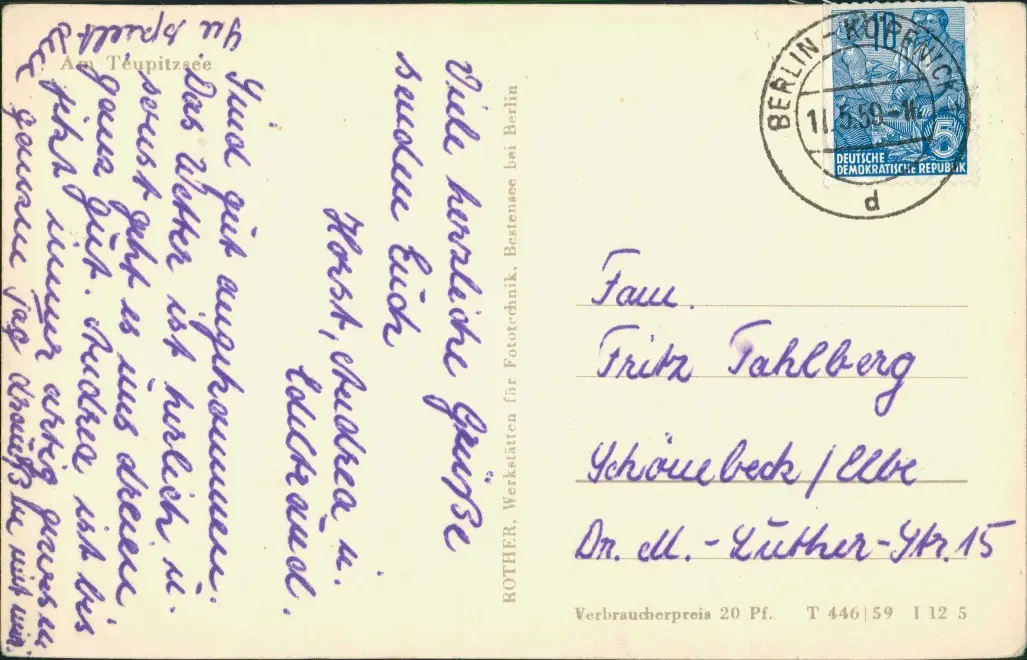 Am Teupitzsee
Viele herzliche Grüße
senden Euch
Horst, Andrea u.
Edeltraud.
Sind gut angekommen.
Das Wetter ist herlich u.
sonst geht es uns dreien
ganz gut. Andrea ist bis
jetzt immer artig gewesen
Sie spielt
ganzen Tag draußen mit mir.
ROTHER, Werkstätten für Fototechnik, Bestensee bei Berlin
BERLIN-KÖPENICK
11.5.59
d
10
5
DEUTSCHE
DEMOKRATISCHE REPUBLIK
Fam.
Fritz Fahlberg
Schönebeck/Elbe
Dr. M.-Luther-Str. 15
Verbraucherpreis 20 Pf. T 446|59 I 12 5